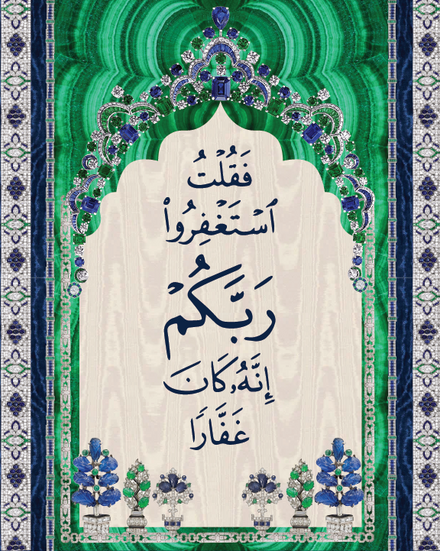 فَقُلْتُ
ٱسْتَغْفِرُوا۟
رَبَّكُمْ
إِنَّهُۥ كَانَ
غَفَّارًا